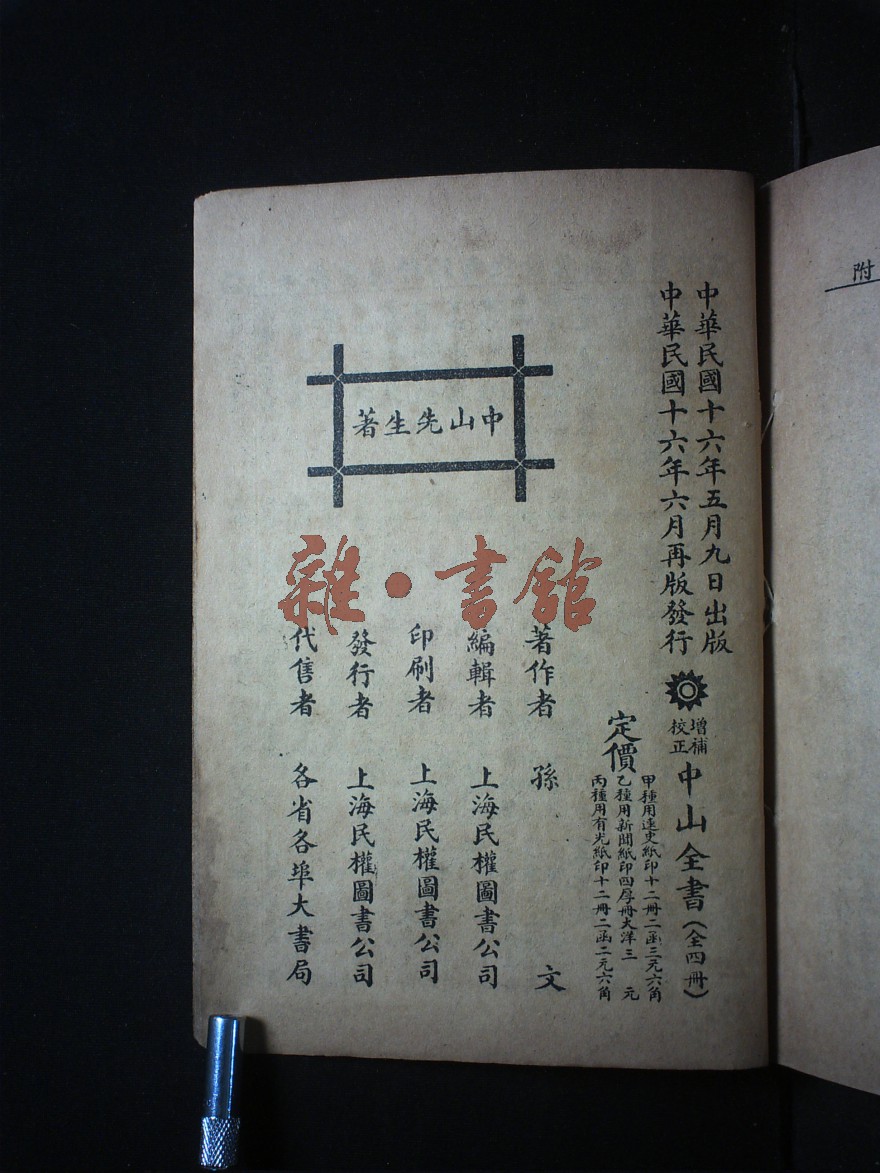 中華民國十六年五月九日出版
中華民國十六年六月再版發行
增補
校正
中山全書(全四冊)
定價
甲種用連史紙印十二冊二函三元六角
乙種用新聞紙印四厚冊大洋三元
丙種用有光紙印十二冊二函二元六角
中山先生著
著作者 孫文
編輯者 上海民權圖書公司
印刷者 上海民權圖書公司
發行者 上海民權圖書公司
代售者 各省各埠大書局
雜·書館
附